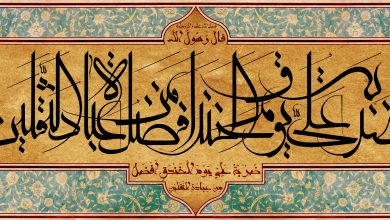 قال رسول الله
ضربة علي يوم الخندق افضل من عبادة الثقلين
ضربة علي يوم الخندق افضل
من عبادة الثقلين